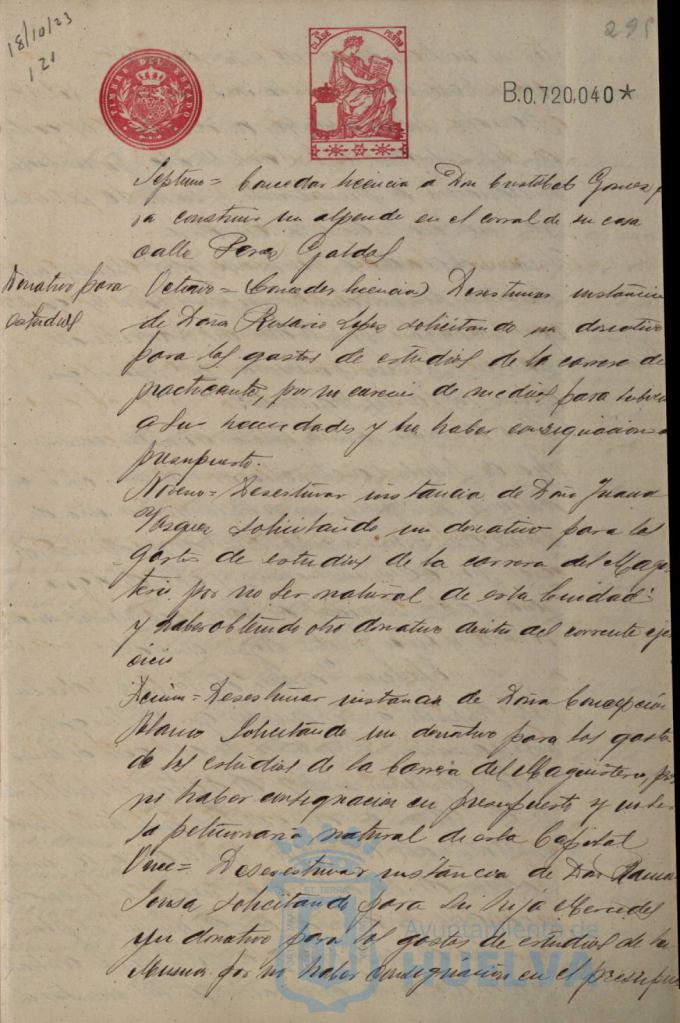 18/10/23
121
295
TIMBRE DEL ESTADO
CLASE
PESETA
B.0,720,040*
Septimo= Conceder licencia a Don Cristobal Gomez p
ra construir un alpende en el corral de su casa
calle Perez Galdos
Donativo para
estudios
Octavo= (Conceder licencia) Desestimar instancia
de Doña Rosario Lopez solicitando un donativo
para los gastos de estudios de la carrera de
practicante, por no carecer de medios para
a sus necesidades y no haber consignacion
presupuesto.
Noveno= Desestimar instancia de Doña Juana
Vasquez solicitando un donativo para los
gastos de estudios de la carrera del Magis
terio por no ser natural de esta Ciudad
y haber obtenido otro donativo dentro del corriente eje
cicio
Decimo= Desestimar instancia de Doña Concepción
Blanco solicitando un donativo para los gastos
de los estudios de la Carrera del Magisterio, por
no haber consignacion en presupuesto y no ser
la peticionaria natural de esta Capital
Once= Desestimar instancia de Don Ramon
Sousa solicitando para su hija Mercedes
un donativo para los gastos de estudios de la
Musica por no haber consignación en el presupu
Ayuntamiento de
HUELVA